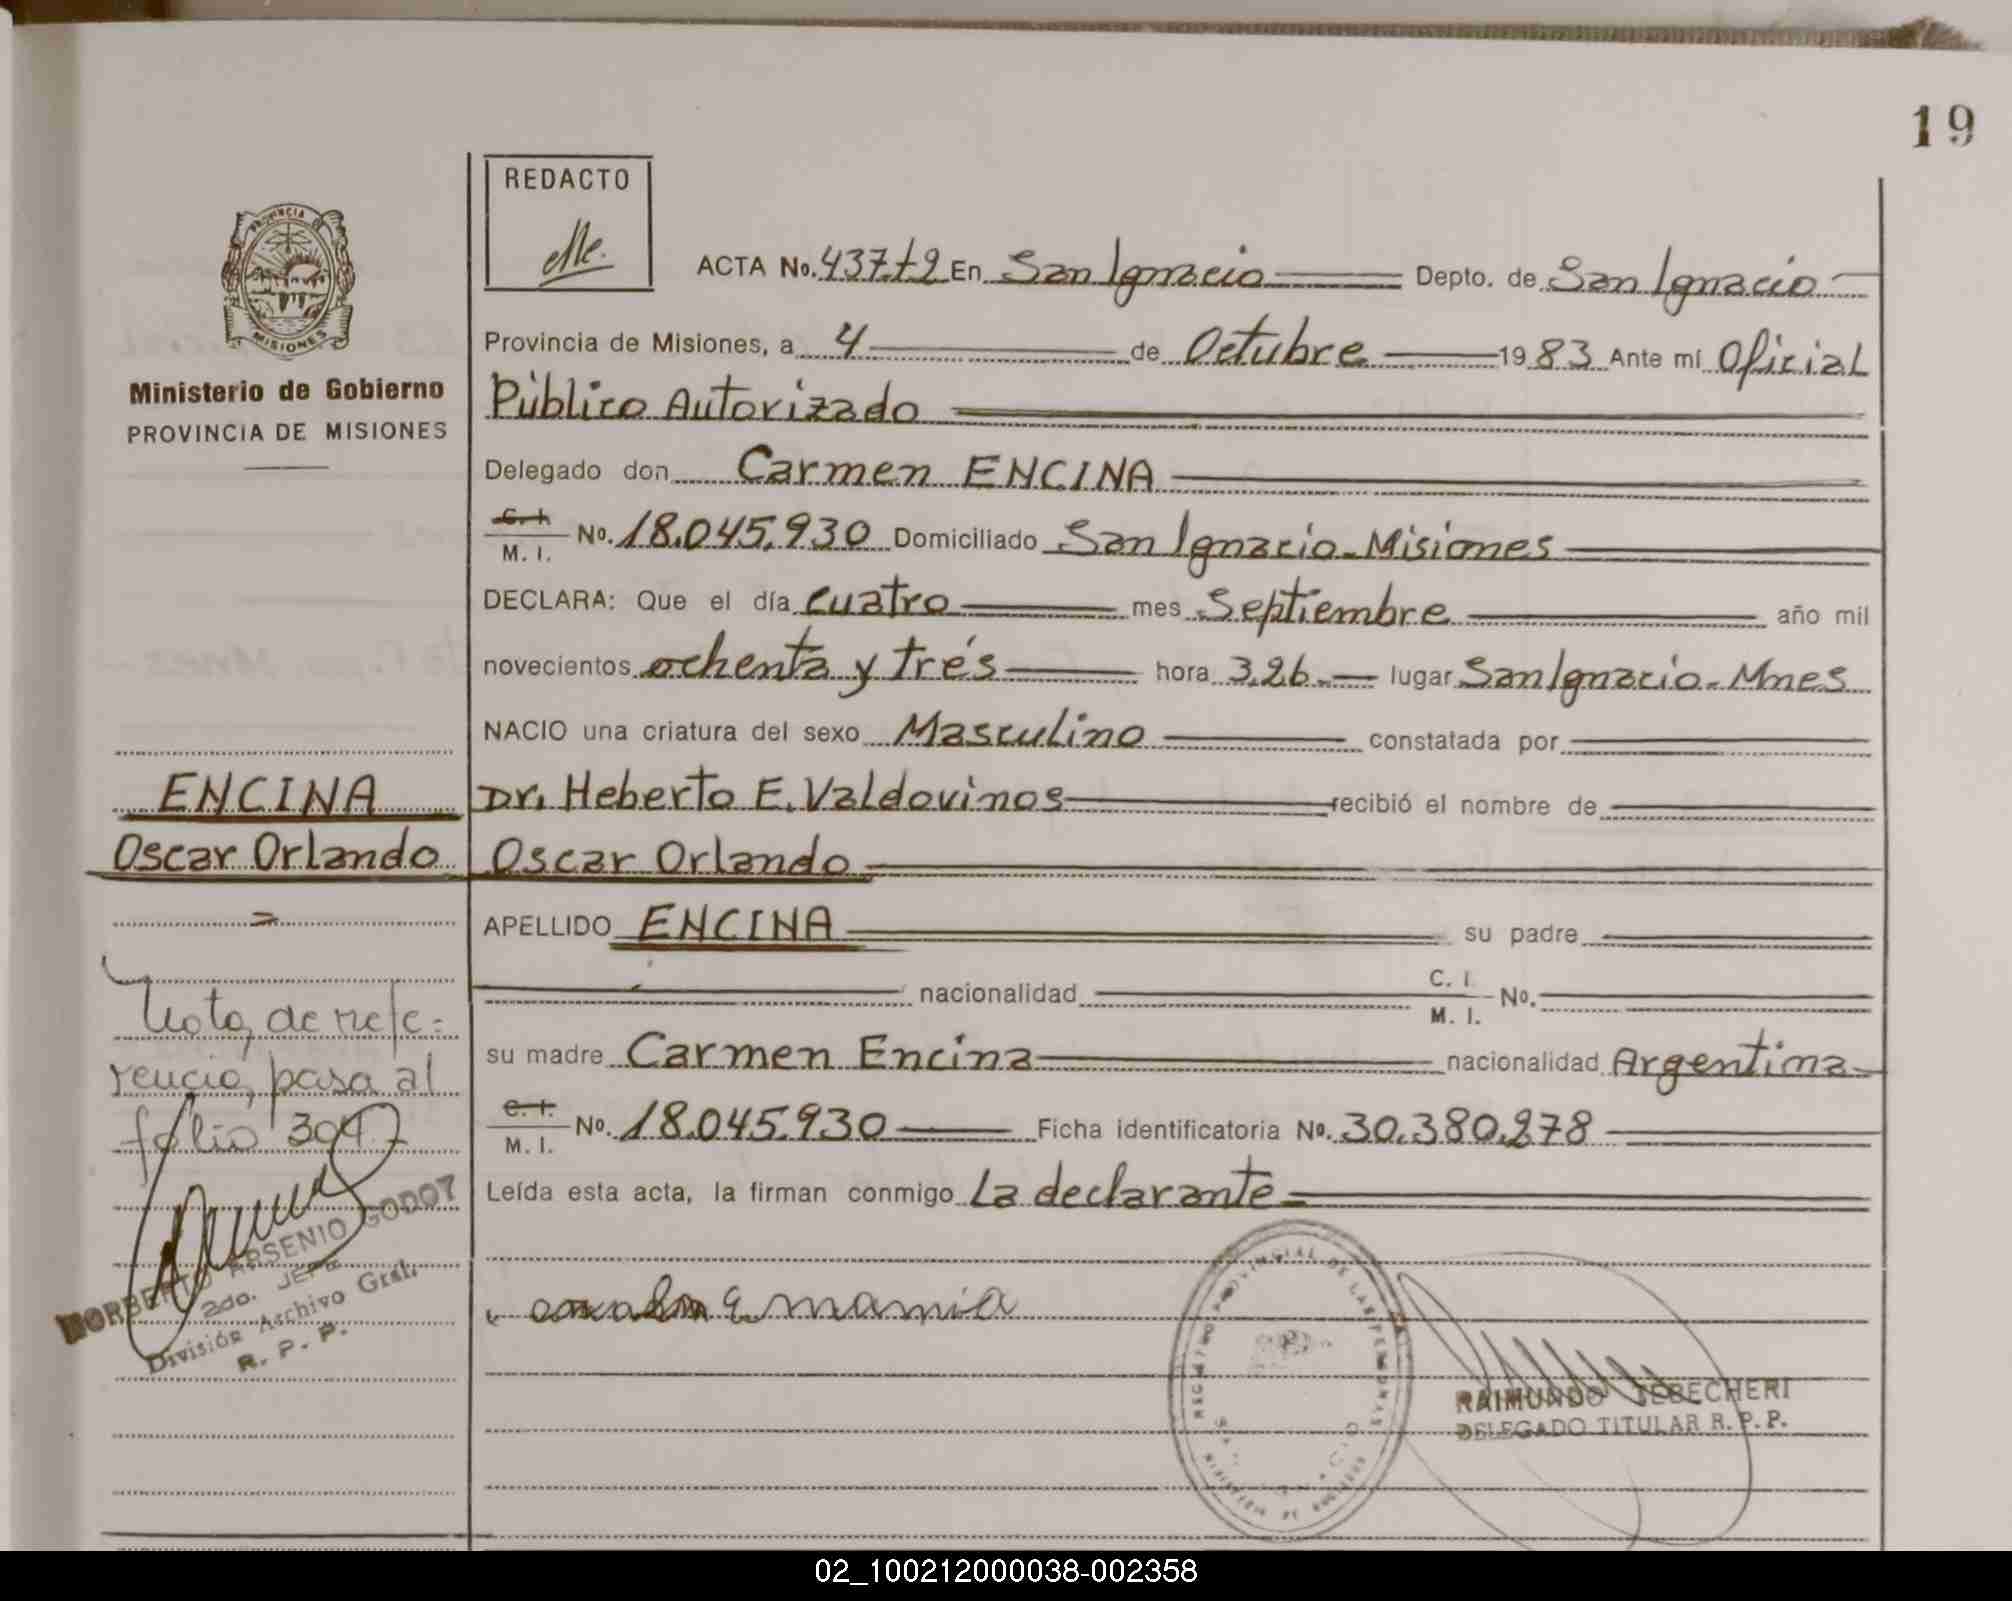 19
REDACTO
PROVINCIA DE
MISIONES
ACTA No. 437.t2 En San Ignacio Depto. de San Ignacio
Provincia de Misiones, a 4 de Octubre 1983 Ante mí Oficial
Ministerio de Gobierno
Público Autorizado
PROVINCIA DE MISIONES
Delegado don Carmen ENCINA
C. I. M. I. No. 18.045.930 Domiciliado San Ignacio-Misiones
DECLARA: Que el día cuatro mes Septiembre año mil
novecientos ochenta y trés hora 3,26.- lugar San Ignacio-Mnes
NACIO una criatura del sexo Masculino constatada por
ENCINA
Dr. Heberto E. Valdovinos recibió el nombre de
Oscar Orlando
Oscar Orlando
=
APELLIDO ENCINA su padre
nacionalidad C. I. M. I. No.
Nota de refe=
su madre Carmen Encina nacionalidad Argentina
rencia, pasa al
folio 304.-
C. I. M. I. No. 18.045.930 Ficha identificatoria No. 30.380.278
Leída esta acta, la firman conmigo La declarante=
NORBERTO ARSENIO GODOY
2do. JEFE
División Archivo Gral.
R. P. P.
REGISTRO PROVINCIAL DE LAS PERSONAS
MINISTERIO DE GOBIERNO
RAIMUNDO JEBECHERI
DELEGADO TITULAR R. P. P.
02_100212000038-002358